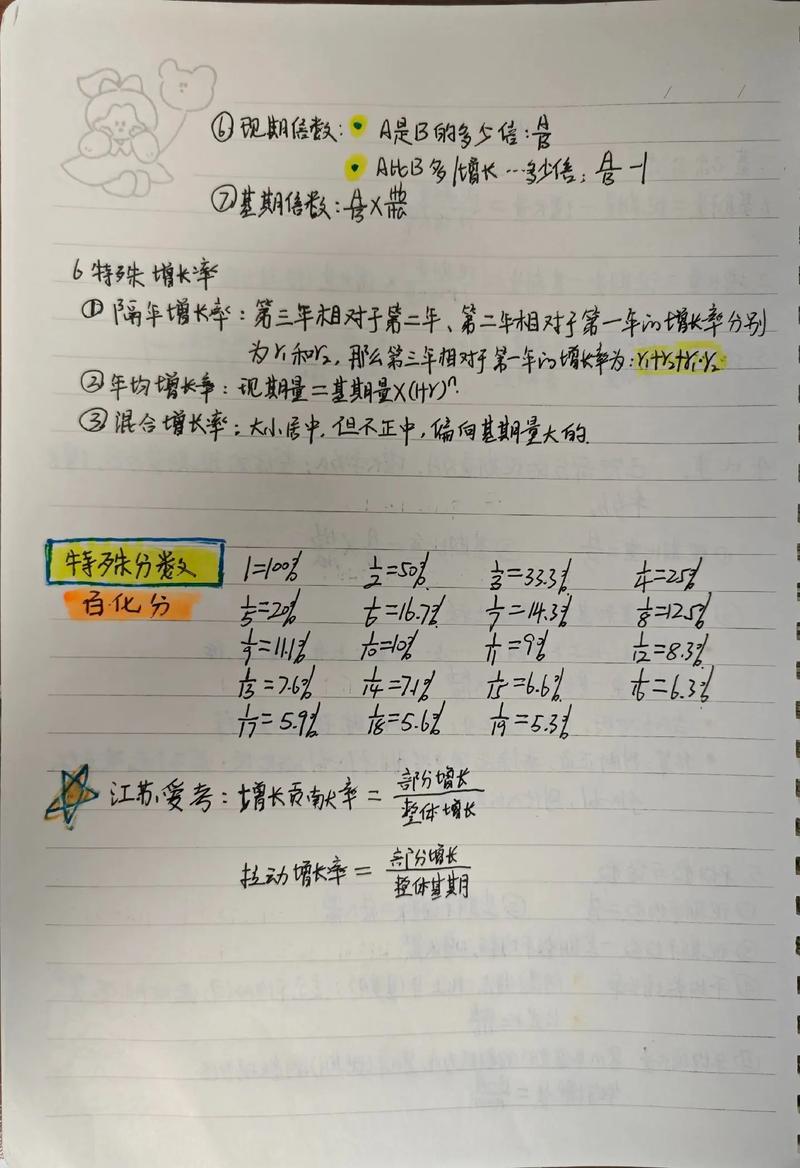 ⑥现期倍数: • A是B的多少倍: A/B
• A比B多/增长…多少倍: A/B -1
⑦基期倍数: A/B × (1+b)/(1+a)
6 特殊增长率
① 隔年增长率: 第三年相对于第二年、第二年相对于第一年的增长率分别
为r₁和r₂, 那么第三年相对于第一年的增长率为: r₁+r₂+r₁·r₂
②年均增长率: 现期量=基期量×(1+r)ⁿ.
③混合增长率: 大小居中, 但不正中, 偏向基期量大的.
特殊分数
百化分
1=100% 1/2=50% 1/3=33.3% 1/4=25%
1/5=20% 1/6=16.7% 1/7=14.3% 1/8=12.5%
1/9=11.1% 1/10=10% 1/11=9% 1/12=8.3%
1/13=7.6% 1/14=7.1% 1/15=6.6% 1/16=6.3%
1/17=5.9% 1/18=5.6% 1/19=5.3%
江苏爱考: 增长贡献率 = 部分增长/整体增长
拉动增长率 = 部分增长/整体基期